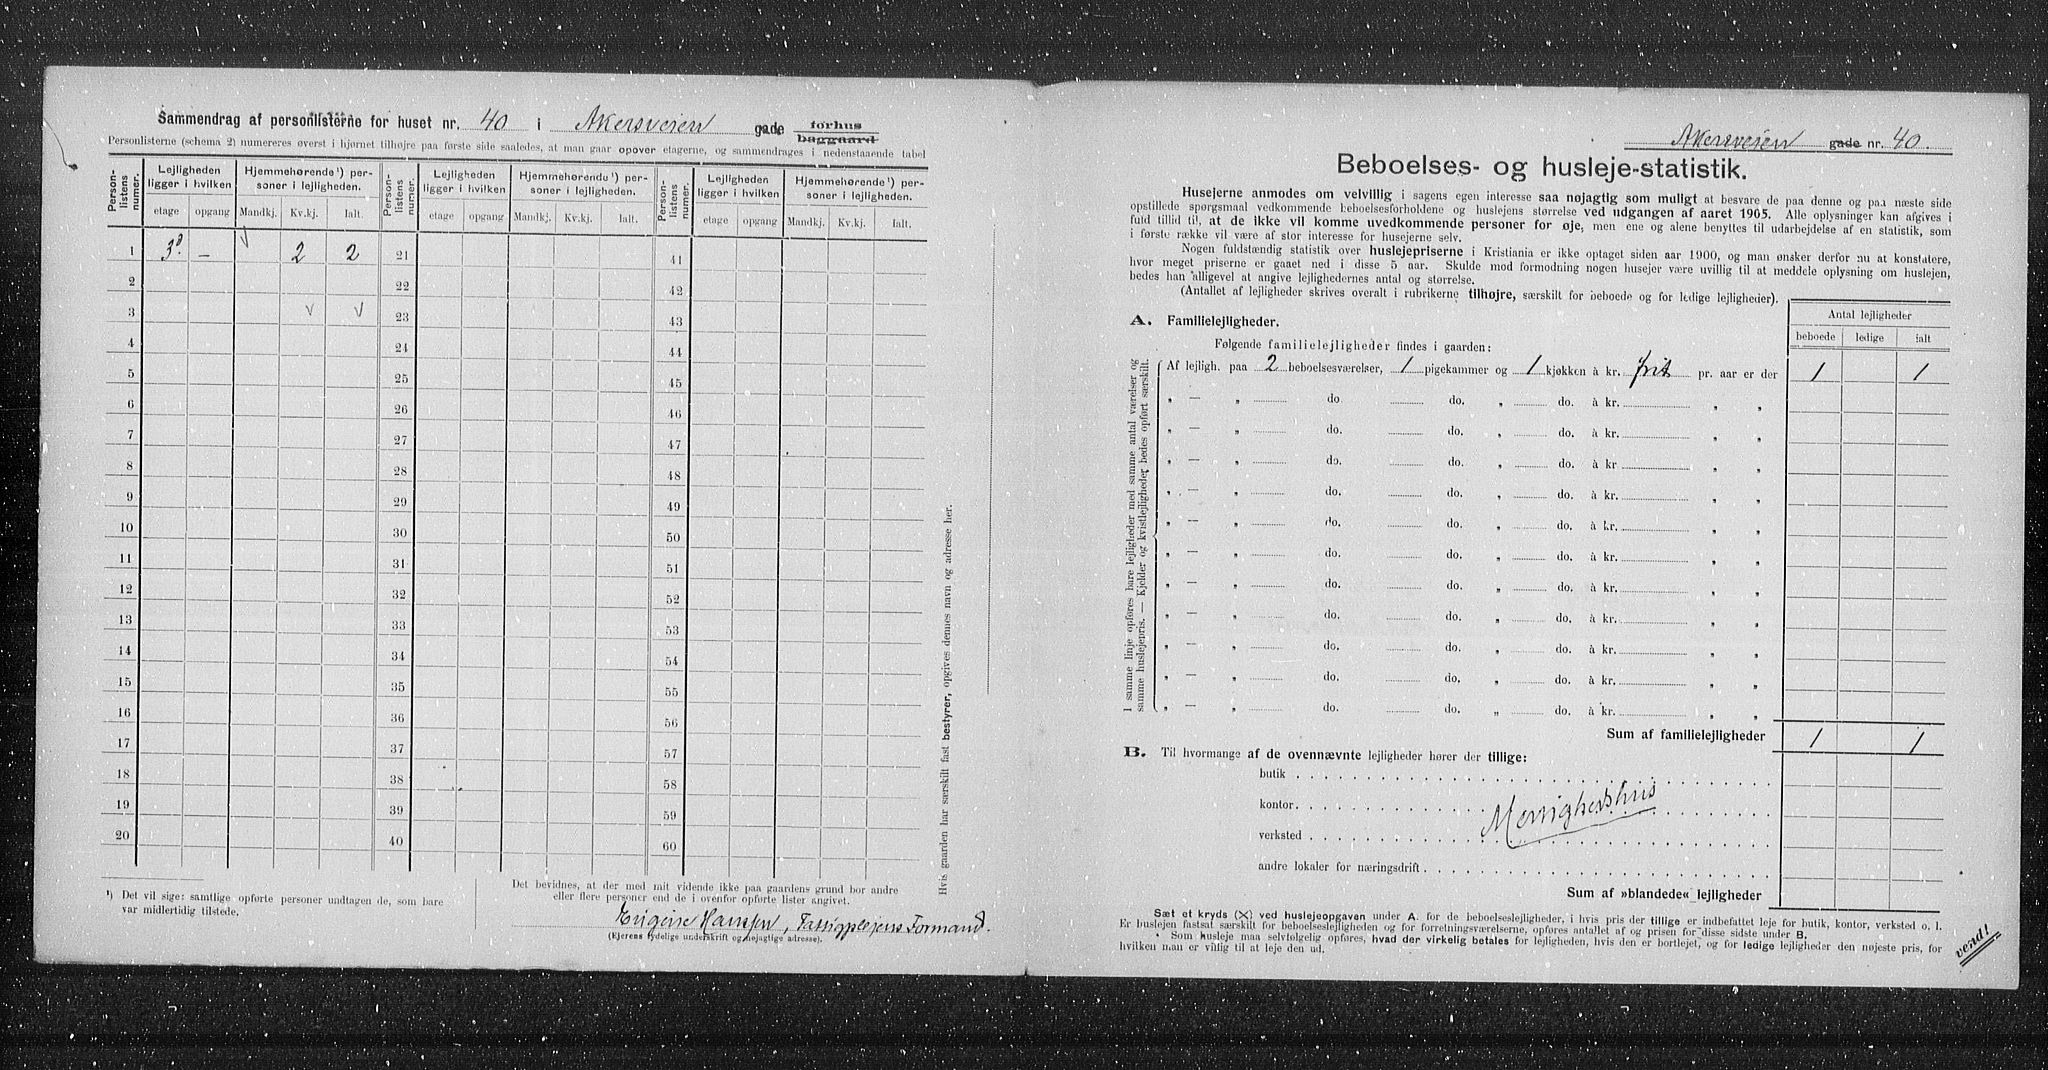 Sammendrag af personlisterne for huset nr. 40 i Akersveien gade forhus baggaard
Personlisterne (schema 2) numereres øverst i hjørnet tilhøjre paa første side saaledes, at man gaar opover etagerne, og sammendrages i nedenstaaende tabel
Person-listens numer. Lejligheden ligger i hvilken Hjemmehørende¹) personer i lejligheden. Person-listens numer. Lejligheden ligger i hvilken Hjemmehørende¹) personer i lejligheden. Person-listens numer. Lejligheden ligger i hvilken Hjemmehørende¹) personer i lejligheden.
etage opgang Mandkj. Kv.kj. Ialt. etage opgang Mandkj. Kv.kj. Ialt. etage opgang Mandkj. Kv.kj. Ialt.
1 3 — √ 2 2 21 41
2 22 42
3 √ √ 23 43
4 24 44
5 25 45
6 26 46
7 27 47
8 28 48
9 29 49
10 30 50
11 31 51
12 32 52
13 33 53
14 34 54
15 35 55
16 36 56
17 37 57
18 38 58
19 39 59
20 40 60
¹) Det vil sige: samtlige opførte personer undtagen de, som bare
var midlertidig tilstede.
Det bevidnes, at der med mit vidende ikke paa gaardens grund bor andre
eller flere personer end de i ovenfor opførte lister angivet.
Hansen, Formand.
(Ejerens tydelige underskrift og nøjagtige adresse).
Hvis gaarden har særskilt fast bestyrer, opgives dennes navn og adresse her.
Akersveien gade nr. 40.
Beboelses- og husleje-statistik.
Husejerne anmodes om velvillig i sagens egen interesse saa nøjagtig som muligt at besvare de paa denne og paa næste side
opstillede spørgsmaal vedkommende beboelsesforholdene og huslejens størrelse ved udgangen af aaret 1905. Alle oplysninger kan afgives i
fuld tillid til, at de ikke vil komme uvedkommende personer for øje, men ene og alene benyttes til udarbejdelse af en statistik, som
i første række vil være af stor interesse for husejerne selv.
Nogen fuldstændig statistik over huslejepriserne i Kristiania er ikke optaget siden aar 1900, og man ønsker derfor nu at konstatere,
hvor meget priserne er gaaet ned i disse 5 aar. Skulde mod formodning nogen husejer være uvillig til at meddele oplysning om huslejen,
bedes han alligevel at angive lejlighedernes antal og størrelse.
(Antallet af lejligheder skrives overalt i rubrikerne tilhøjre, særskilt for beboede og for ledige lejligheder).
Antal lejligheder
beboede ledige ialt
A. Familielejligheder.
Følgende familielejligheder findes i gaarden:
I samme linje opføres bare lejligheder med samme antal værelser og
samme huslejepris. — Kjelder og kvistlejligheder bedes opført særskilt.
Af lejligh. paa 2 beboelsesværelser, 1 pigekammer og 1 kjøkken à kr. frit pr. aar er der 1 1
„ — „ do. do. „ do. à kr. „ „
„ — „ do. do. „ do. à kr. „ „
„ — „ do. do. „ do. à kr. „ „
„ — „ do. do. „ do. à kr. „ „
„ — „ do. do. „ do. à kr. „ „
„ — „ do. do. „ do. à kr. „ „
„ — „ do. do. „ do. à kr. „ „
„ — „ do. do. „ do. à kr. „ „
„ — „ do. do. „ do. à kr. „ „
„ — „ do. do. „ do. à kr. „ „
„ — „ do. do. „ do. à kr. „ „
Sum af familielejligheder 1 1
B. Til hvormange af de ovennævnte lejligheder hører der tillige:
butik
kontor
Menighedshus
verksted
andre lokaler for næringsdrift
Sum af »blandede« lejligheder
Sæt et kryds (X) ved huslejeopgaven under A. for de beboelseslejligheder, i hvis pris der tillige er indbefattet leje for butik, kontor, verksted o. l.
Er huslejen fastsat særskilt for beboelseslejligheden og for forretningsværelserne, opføres antallet af og prisen for disse sidste under B.
Som husleje maa selvfølgelig opføres, hvad der virkelig betales for lejligheden, hvis den er bortlejet, og for ledige lejligheder den nøjeste pris, for
hvilken man er villig til at leje den ud.
vend!